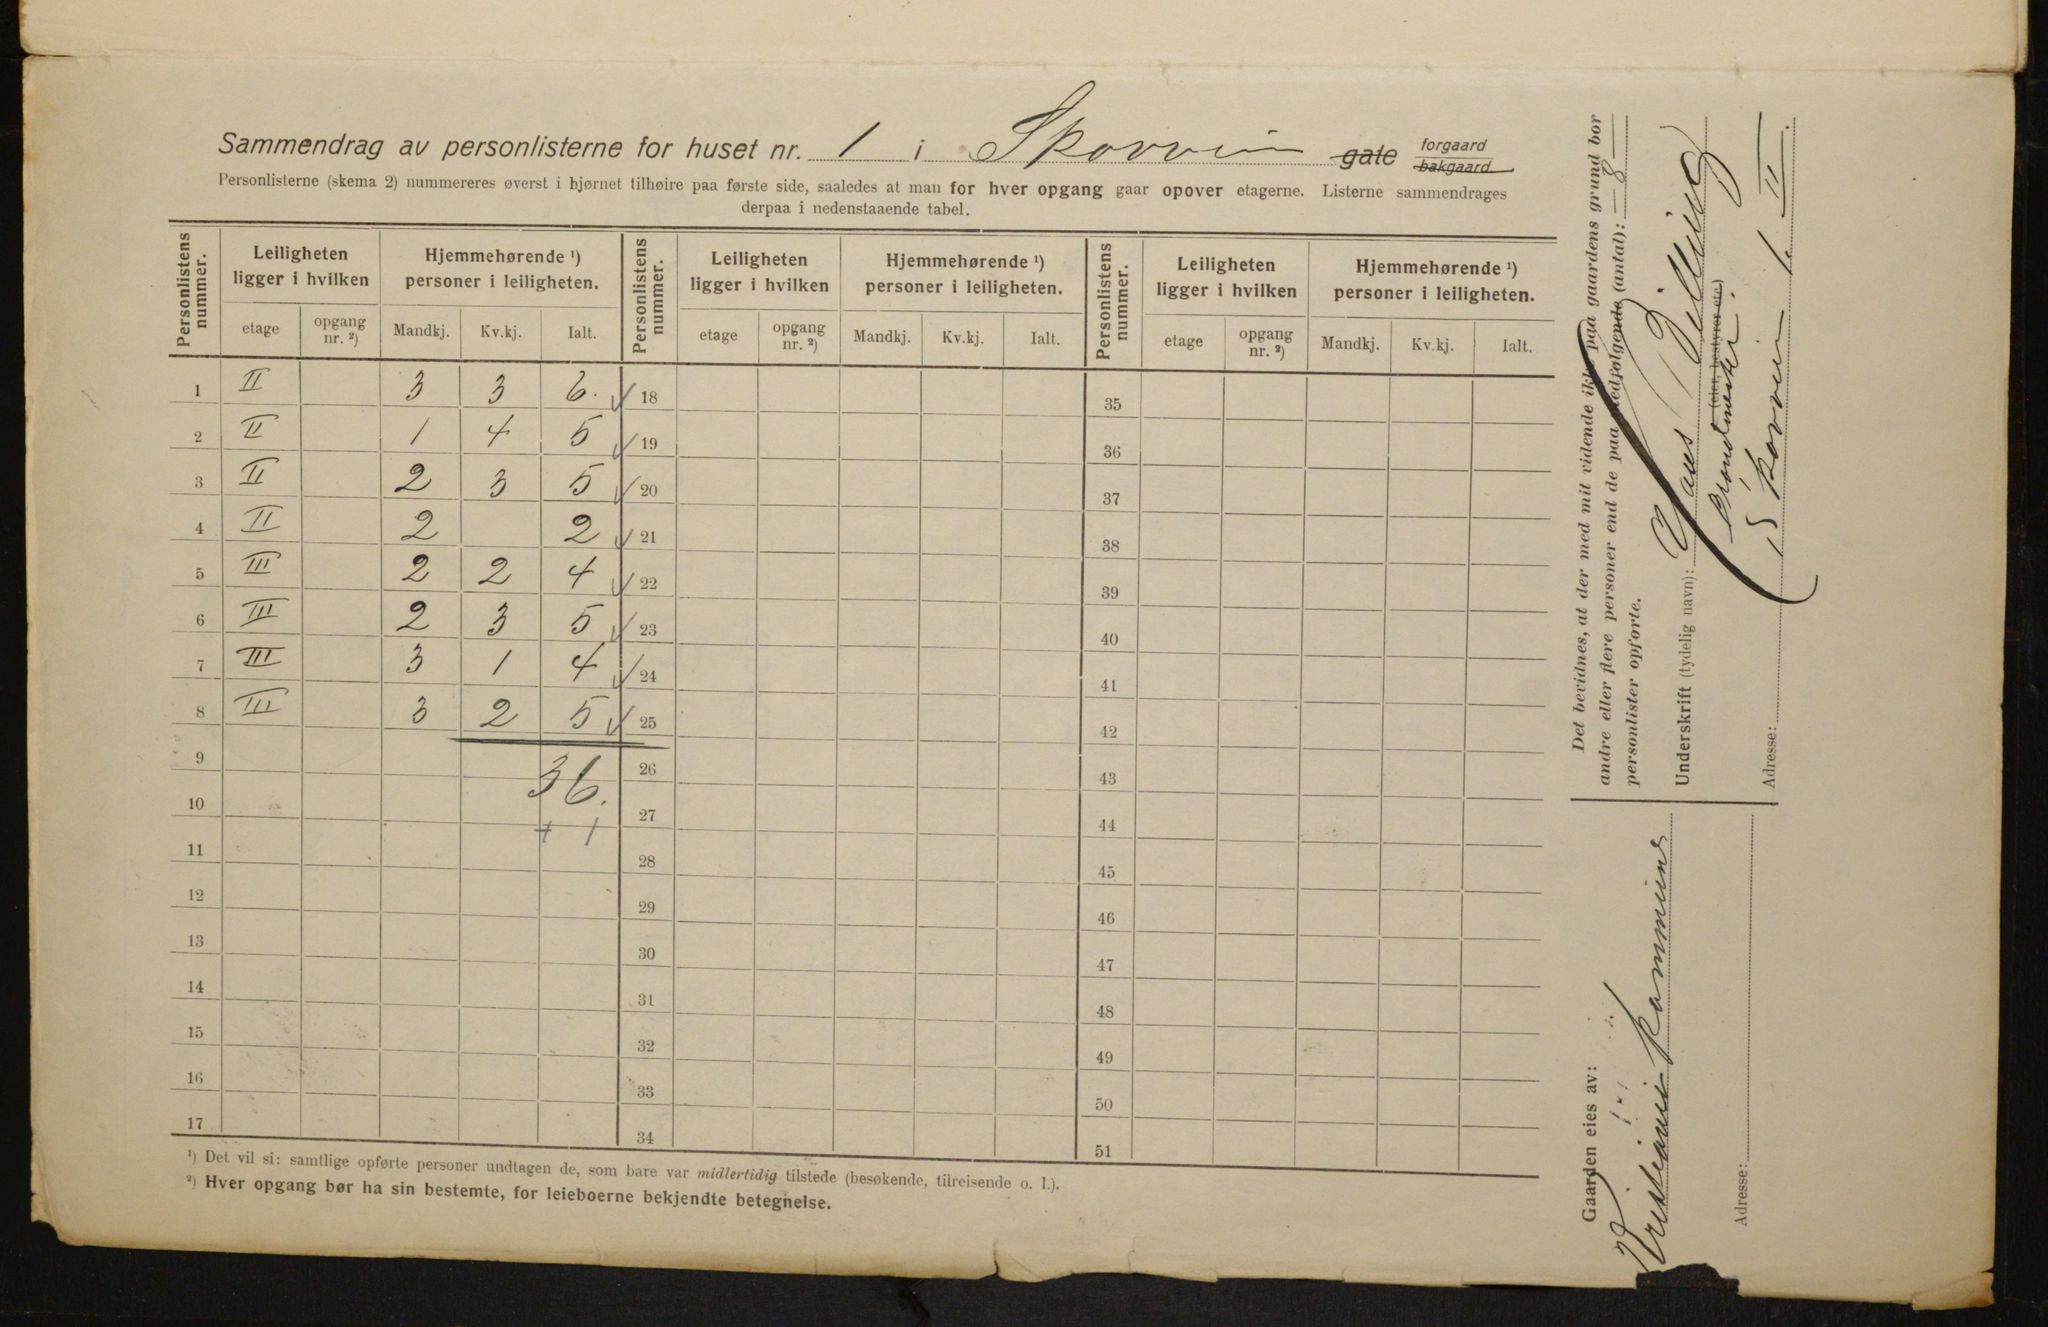 Sammendrag av personlisterne for huset nr. 1 i Skovvin gate forgaard bakgaard.
Personlisterne (skema 2) nummereres øverst i hjørnet tilhøire paa første side, saaledes at man for hver opgang gaar opover etagerne. Listerne sammendrages
derpaa i nedenstaaende tabel.
Personlistens nummer. Leiligheten ligger i hvilken Hjemmehørende ¹) personer i leiligheten. Personlistens nummer. Leiligheten ligger i hvilken Hjemmehørende ¹) personer i leiligheten. Personlistens nummer. Leiligheten ligger i hvilken Hjemmehørende ¹) personer i leiligheten.
etage opgang nr. ²) Mandkj. Kv.kj. Ialt. etage opgang nr. ²) Mandkj. Kv.kj. Ialt. etage opgang nr. ²) Mandkj. Kv.kj. Ialt.
1 II 3 3 6. ✓ 18 35
2 II 1 4 5 ✓ 19 36
3 II 2 3 5 ✓ 20 37
4 II 2 2 ✓ 21 38
5 III 2 2 4 ✓ 22 39
6 III 2 3 5 ✓ 23 40
7 III 3 1 4 ✓ 24 41
8 III 3 2 5 ✓ 25 42
9 36. 26 43
10 + 1 27 44
11 28 45
12 29 46
13 30 47
14 31 48
15 32 49
16 33 50
17 34 51
¹) Det vil si: samtlige opførte personer undtagen de, som bare var midlertidig tilstede (besøkende, tilreisende o. l.).
²) Hver opgang bør ha sin bestemte, for leieboerne bekjendte betegnelse.
Det bevidnes, at der med mit vidende ikke paa gaardens grund bor
andre eller flere personer end de paa medfølgende (antal): — 8 —
personlister opførte.
Underskrift (tydelig navn): Hans
(eier, bestyrer etc.)
Adresse: Skovvin 1. II
Gaarden eies av:
Kristiania kommune
Adresse: